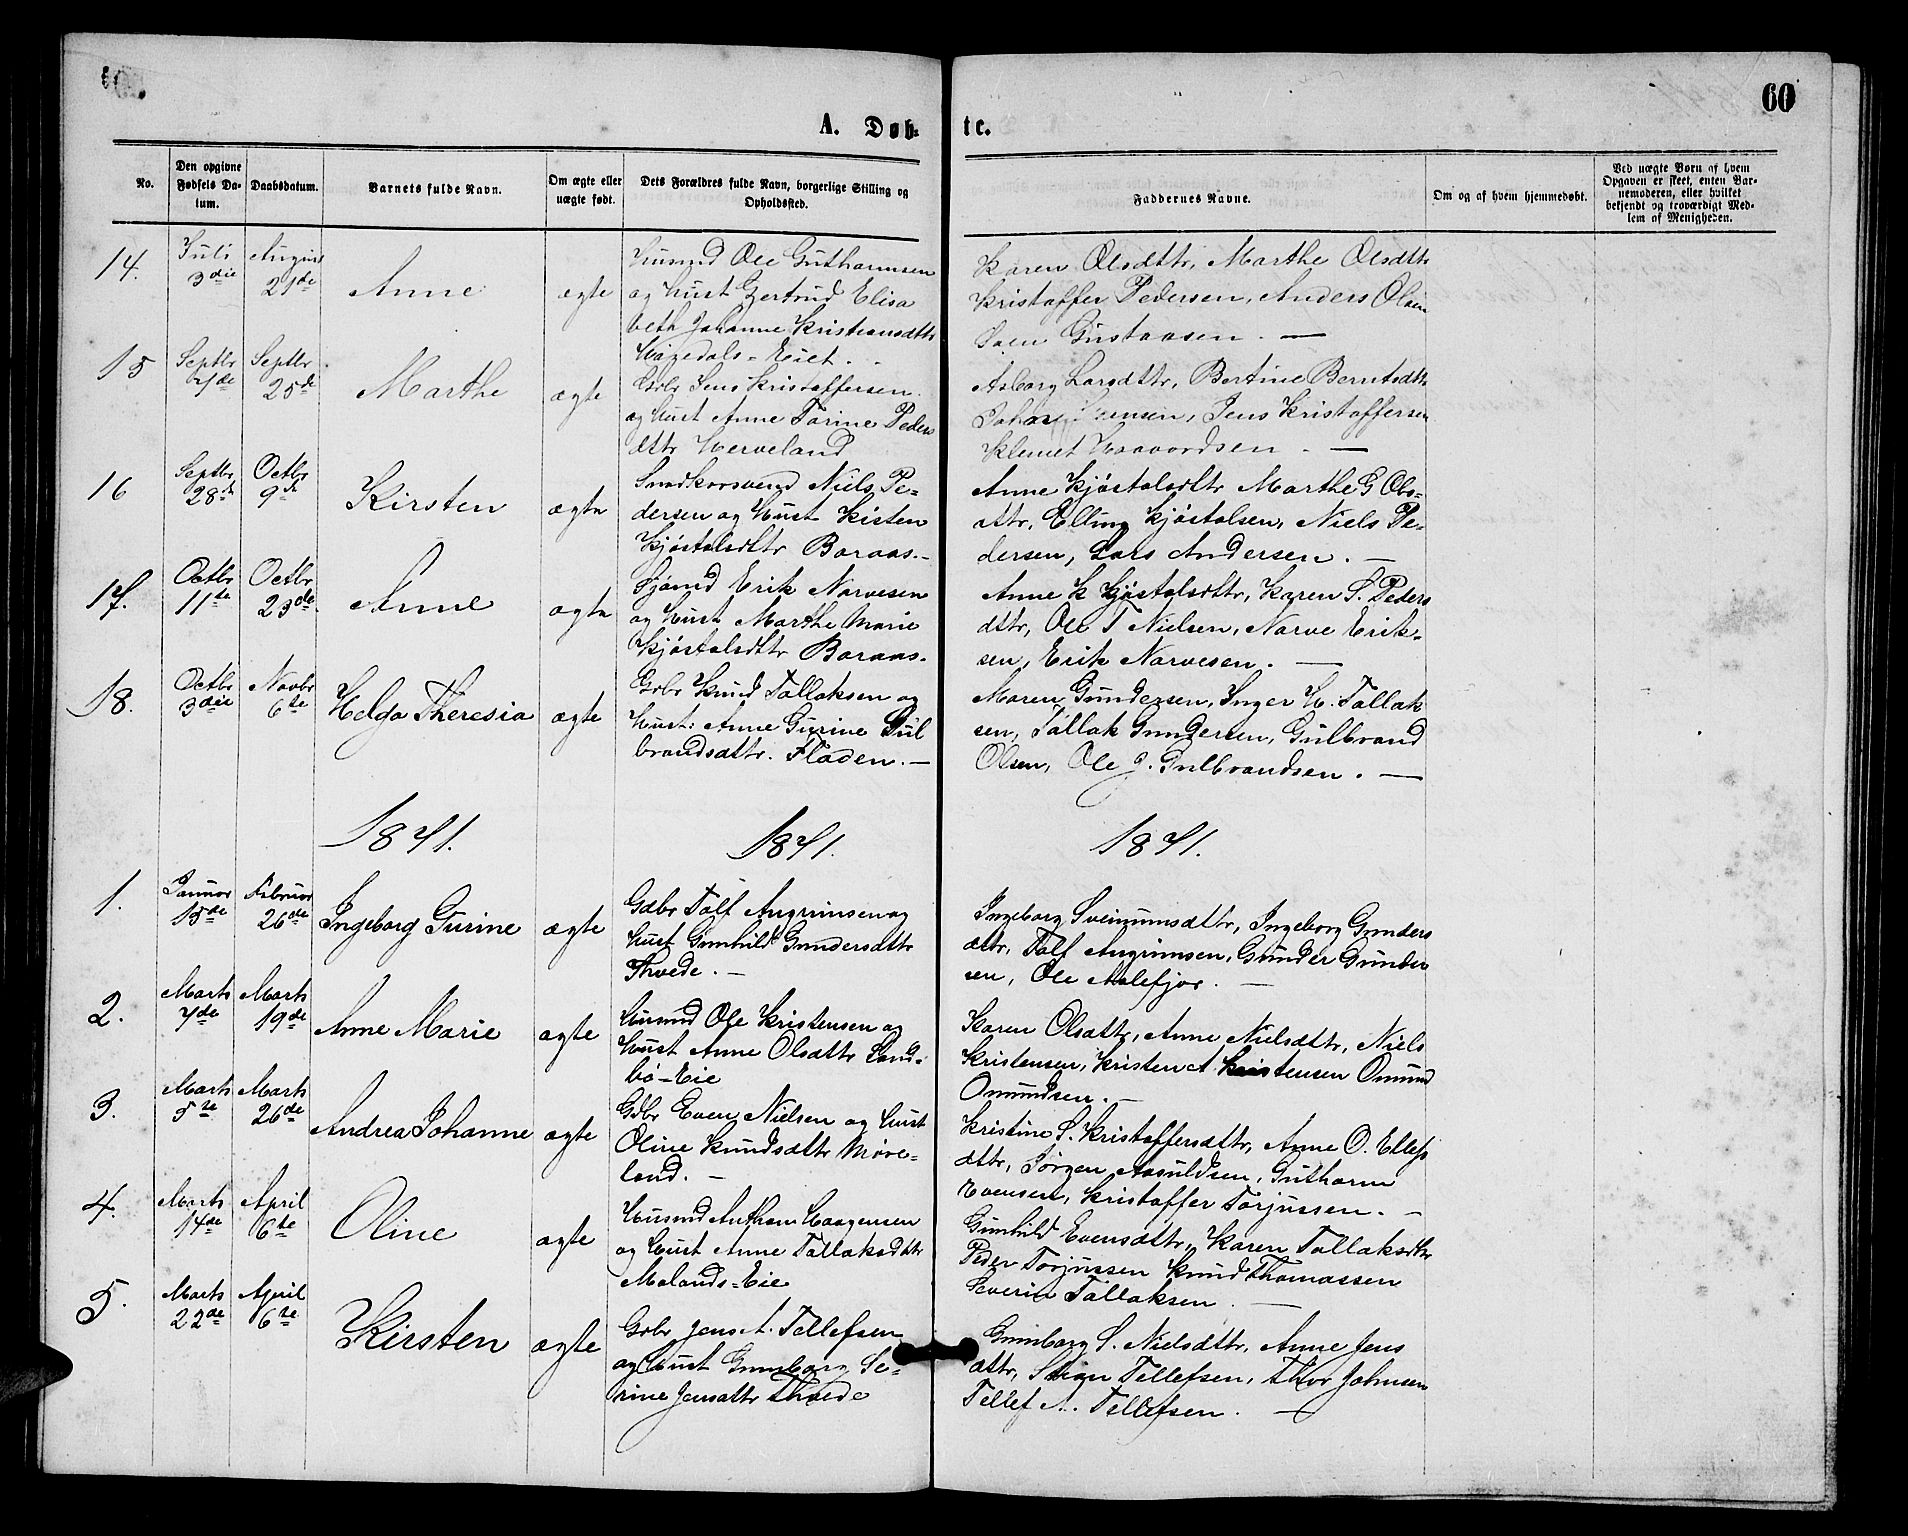 60
A. Døb- te.
No.
Den opgivne Fødsels Da-tum.
Daabsdatum.
Barnets fulde Navn.
Om ægte eller uægte født.
Dets Forældres fulde Navn, borgerlige Stilling og Opholdssted.
Faddernes Navne.
Om og af hvem hjemmedøbt.
Ved uægte Børn af hvem Opgaven er skeet, enten Bar-nemoderen, eller hvilket bekjendt og troværdigt Med-lem af Menigheden.
14. Juli 3die August 21de Anne ægte
Husmd Ole Guthormsen
og Hust Gertrud Elisa
beth Johanne Kristiansdttr
Hagedals-Eiet.
Karen Olsdttr, Marthe Olsdttr
Kristoffer Pedersen, Anders Olsen
Gustavsen. —
15 Septbr 7de Septbr 25de Marthe ægte
Gdbr Jens Kristoffersen
og Hust Anne Torine Peders
dttr Herveland
Asborg Larsdttr, Bertine Berntsdttr
Jens Kristoffersen
Klemet Haavordsen. —
16 Septbr 28de Octbr 9de Kirsten ægte
Snedkersvend Niels Pe-
dersen og Hust Kisten
Kjøstolsdttr Boraas.-
Anne Kjøstolsdttr Marthe G Ols-
dttr, Elling Kjøstolsen, Niels Pe-
dersen, Lars Andersen. —
17. Octbr 11te Octbr 23de Anne ægte
Sjømd Erik Narvesen
og Hust Marthe Marie
Kjøstolsdttr Boraas.
Anne K Kjøstolsdttr, Karen S. Peders
dttr, Ole T Nielsen, Narve Erik-
sen, Erik Narvesen. —
18. Octbr 3die Novbr 6te Helga Theresia ægte
Gdbr Knud Tallaksen og
Hust: Anne Gurine Gul
brandsdttr. Fladen. —
Maren Gundersen, Inger H. Tallak
sen, Tallak Gundersen, Gulbrand
Olsen, Ole J. Gulbrandsen. —
1871. 1871. 1871.
1. Januar 15de Februar 26de Ingeborg Gurine ægte
Gdbr Tolf Angrimsen og
Hust Gunhild Gundersdttr
Thvede. —
Ingeborg Sveinumsdttr, Ingeborg Gunders
dttr, Tolf Angrimsen, Gunder Gunder
sen, Ole Aalefjær. —
2. Marts 7de Marts 19de Anne Marie ægte
Husmd Ole Kristensen og
Hust Anne Olsdttr Sand-
bø-Eie
Karen Olsdttr, Anne Nielsdttr, Niels
Kristensen, Kristen A Kristensen Omund
Omundsen. —
3. Marts 5te Marts 26de Andrea Johanne ægte
Gdbr Even Nielsen og Hust
Oline Knudsdttr Møre-
land. —
Kristine S. Kristoffersdttr, Anne O. Ellefs
dttr, Jørgen Aasuldsen, Guthorm
Evensen, Kristoffer Torjussen. —
4. Marts 14de April 6te Oline ægte
Husmd Anthon Haagensen
og Hust Anne Tallaksdttr
Molands-Eie
Gunhild Evensdttr, Karen Tallaksdttr
Peder Torjussen Knud Thomassen
Severin Tallaksen. —
5. Marts 22de April 6te Kirsten ægte
Gdbr Jens A. Tellefsen
og Hust Gunborg Se-
rine Jensdttr Thvede
Gunborg S. Nielsdttr, Anne Jens
dttr, Stian Tellefsen, Thor Johnsen
Tellef A. Tellefsen. —